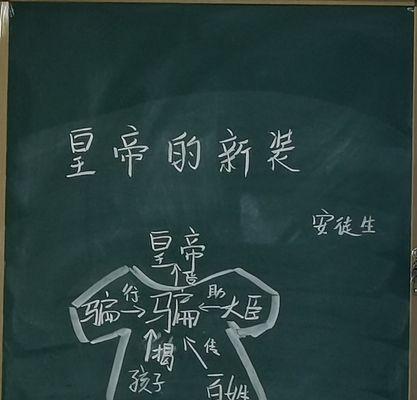 皇帝的新装
安徒生
皇帝
骗 行 骗 助 大臣
揭 传
孩子 百姓